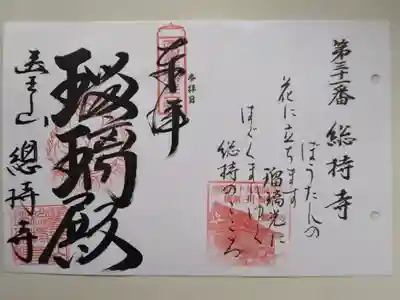 第三十一番 総持寺
ぼうたんの
花に立ちます
瑠璃光に
はぐくまれゆく
総持のこころ
参拝日
奉拝
瑠璃殿
医王山 總持寺